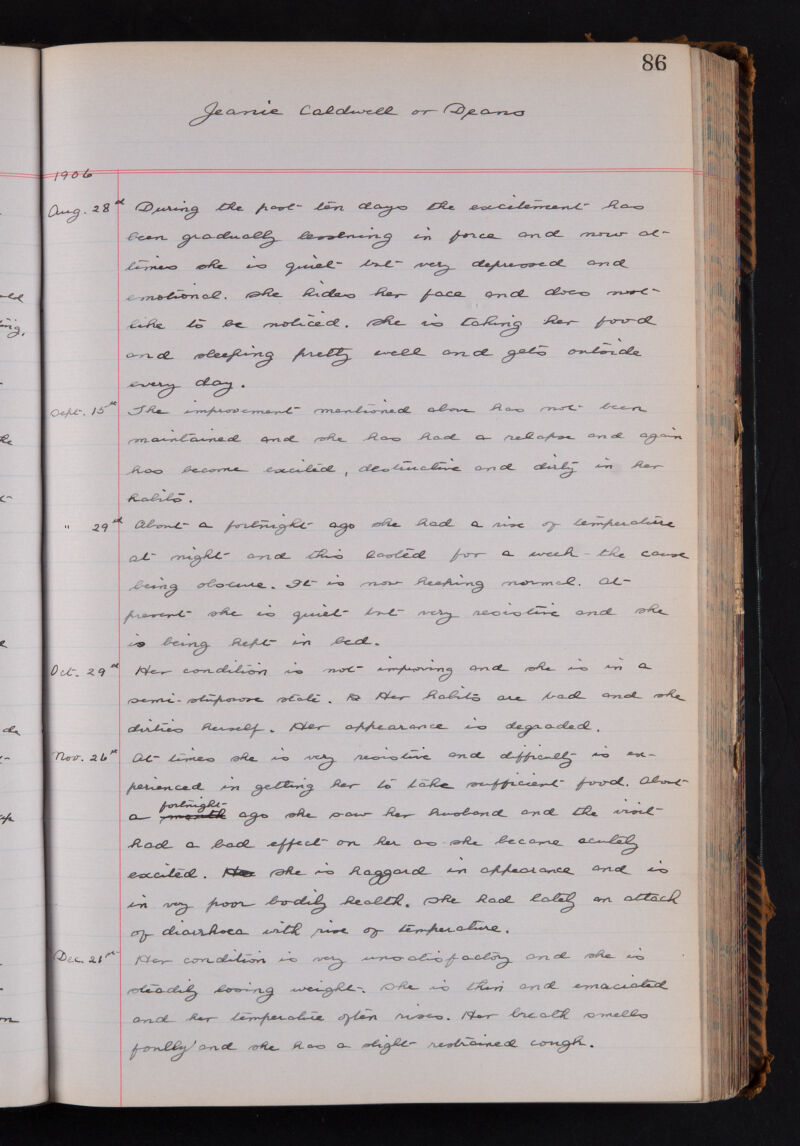 86
Jeanie Caldwell or Deans
1906
Aug. 28th During the past ten days the excitement has
been gradually lessening in force and now at
times she is quiet but very depressed and
emotional. She hides her face and does not
like to be noticed. She is taking her food
and sleeping pretty well and gets outside
every day.
Sept. 15th The improvement mentioned above has not been
maintained and she has had a relapse and again
has become excited, destructive and dirty in her
habits.
" 29th About a fortnight ago she had a rise of temperature
at night and this lasted for a week - the cause
being obscure. It is now keeping normal. At
present she is quiet but very resistive and she
is being kept in bed.
Oct. 29th Her condition is not improving and she is in a
semi-stuporose state. Her habits are bad and she
dirties herself. Her appearance is degraded.
Nov. 26th At times she is very resistive and difficulty is ex-
perienced in getting her to take sufficient food. About
a month fortnight ago she saw her husband and the visit
had a bad effect on her as she became acutely
excited. Her She is haggard in appearance and is
in very poor bodily health. She had lately an attack
of diarrhoea with rise of temperature.
Dec. 21st Her condition is very unsatisfactory and she is
steadily losing weight. She is thin and emaciated
and her temperature often rises. Her breath smells
foully and she has a slight restrained cough.